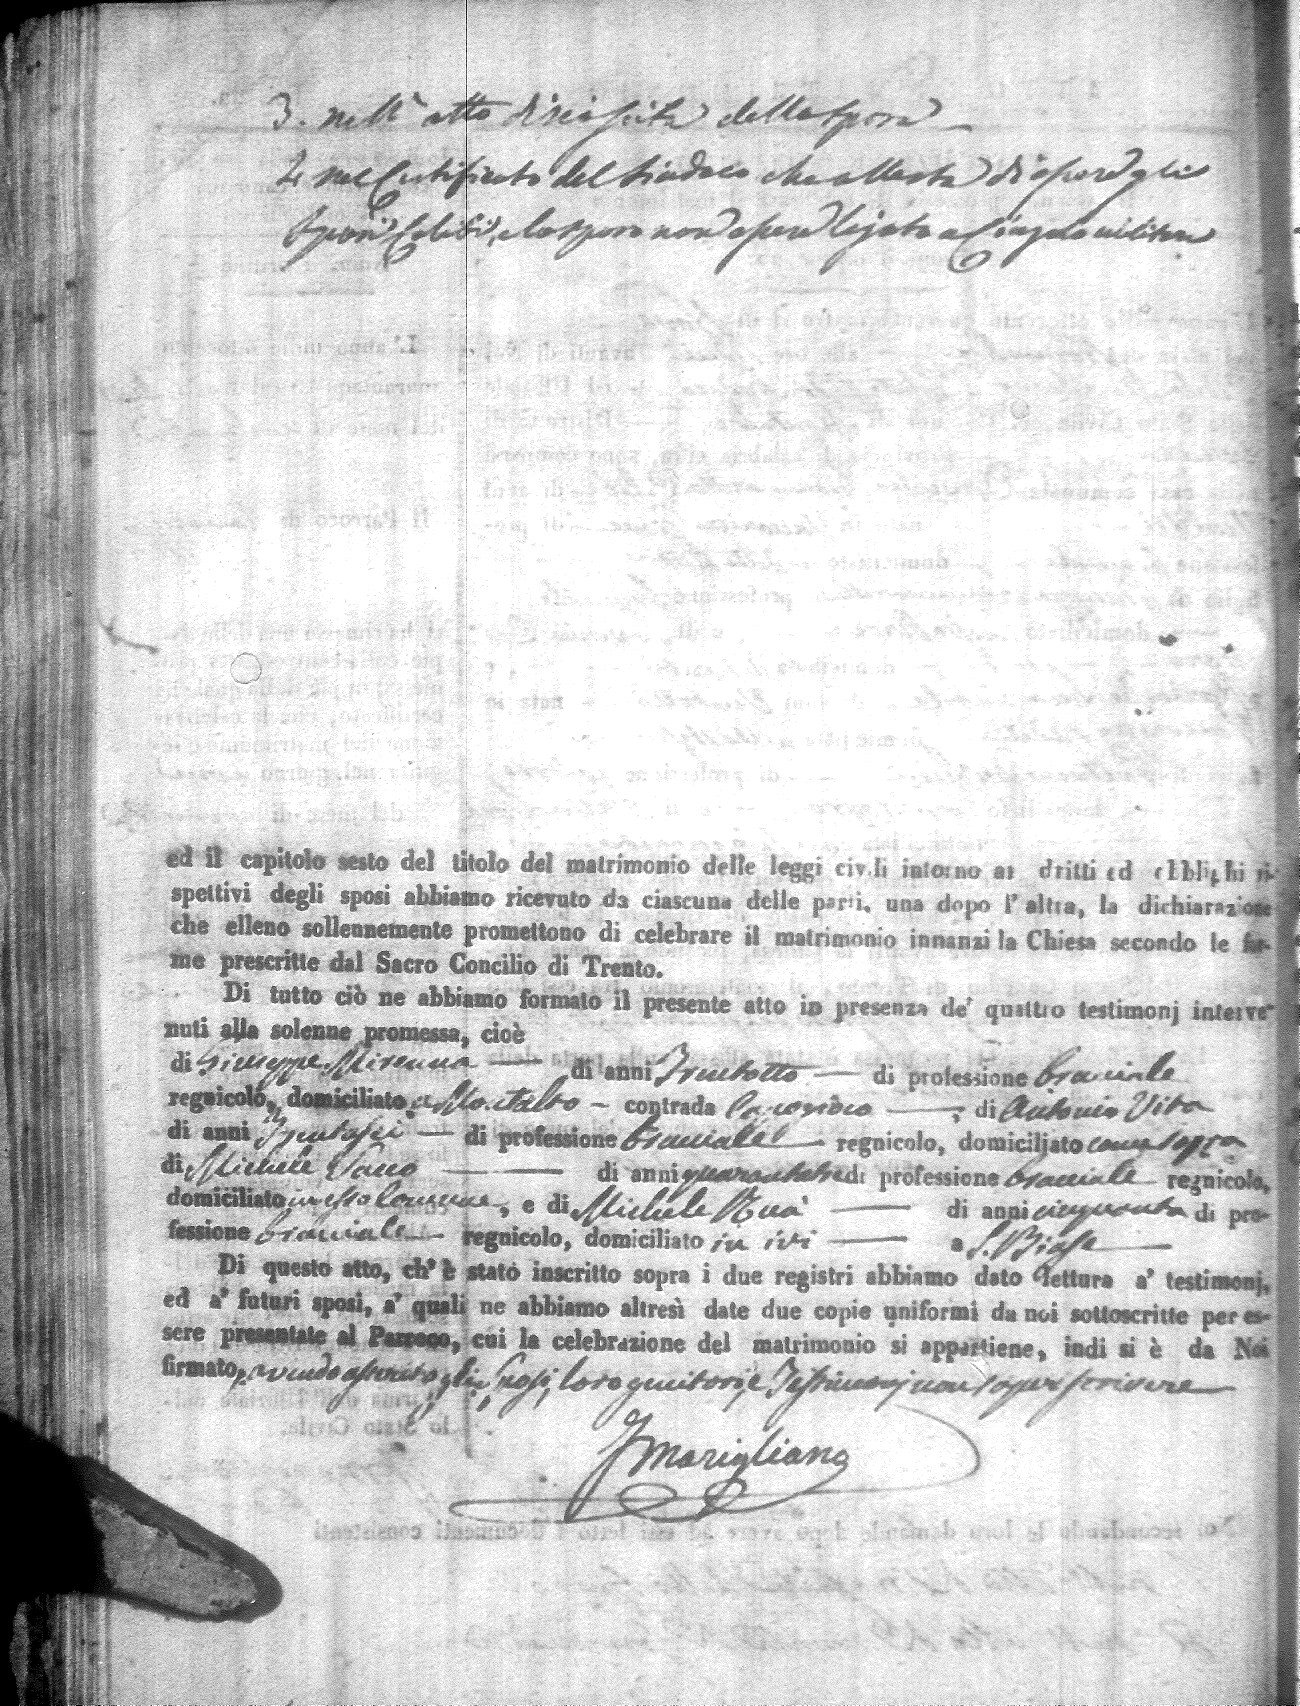 3. nell'atto di nascita della sposa
4 nel Certificato del Sindaco che attesta di essere gli
Sposi Celibi, e lo sposo non essere legato a Cingolo militare
ed il capitolo sesto del titolo del matrimonio delle leggi civili intorno ai dritti ed obblighi ri-
spettivi degli sposi abbiamo ricevuto da ciascuna delle parti, una dopo l'altra, la dichiarazione
che elleno sollennemente promettono di celebrare il matrimonio innanzi la Chiesa secondo le for-
me prescritte dal Sacro Concilio di Trento.
Di tutto ciò ne abbiamo formato il presente atto in presenza de' quattro testimonj interve-
nuti alla solenne promessa, cioè
di Giuseppe Mirenna di anni Trentotto di professione bracciale
regnicolo, domiciliato a Montalto - contrada , di Antonio Vita
di anni Trentasei di professione bracciale regnicolo, domiciliato come sopra
di Michele Sacco di anni quarantatre di professione bracciale regnicolo,
domiciliato in esso Comune, e di Michele di anni cinquanta di pro-
fessione bracciale regnicolo, domiciliato in ivi a S. Biase
Di questo atto, ch'è stato inscritto sopra i due registri abbiamo dato lettura a' testimonj,
ed a' futuri sposi, a' quali ne abbiamo altresì date due copie uniformi da noi sottoscritte per es-
sere presentate al Parroco, cui la celebrazione del matrimonio si appartiene, indi si è da Noi
firmato, avendo asserito gli Sposi, loro genitori, e Testimonj non saper scrivere
F Marigliano